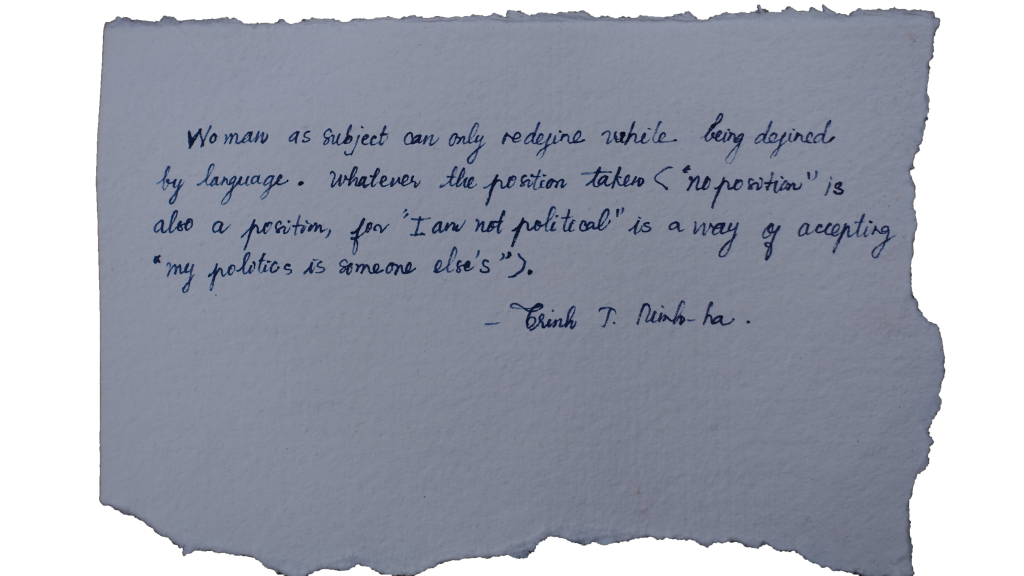 Woman as subject can only redefine while being defined
by language. Whatever the position taken ("no position" is
also a position, for "I am not political" is a way of accepting
"my politics is someone else's").
- Trinh T. Minh-ha.